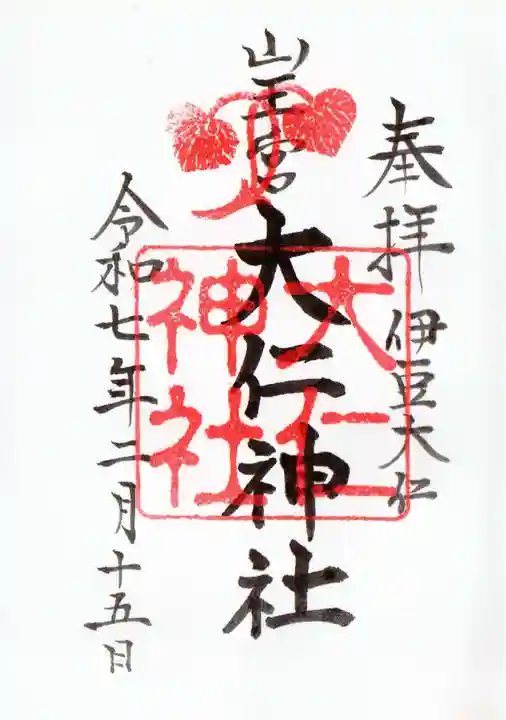 奉拝 伊豆大仁
山王宮 大仁神社
大仁
神社
令和七年二月十五日